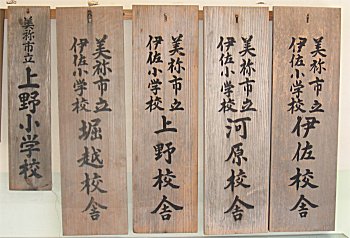 美祢市立
伊佐小学校
伊佐校舎
美祢市立
伊佐小学校
河原校舎
美祢市立
伊佐小学校
上野校舎
美祢市立
伊佐小学校
堀越校舎
美祢市立
上野小学校